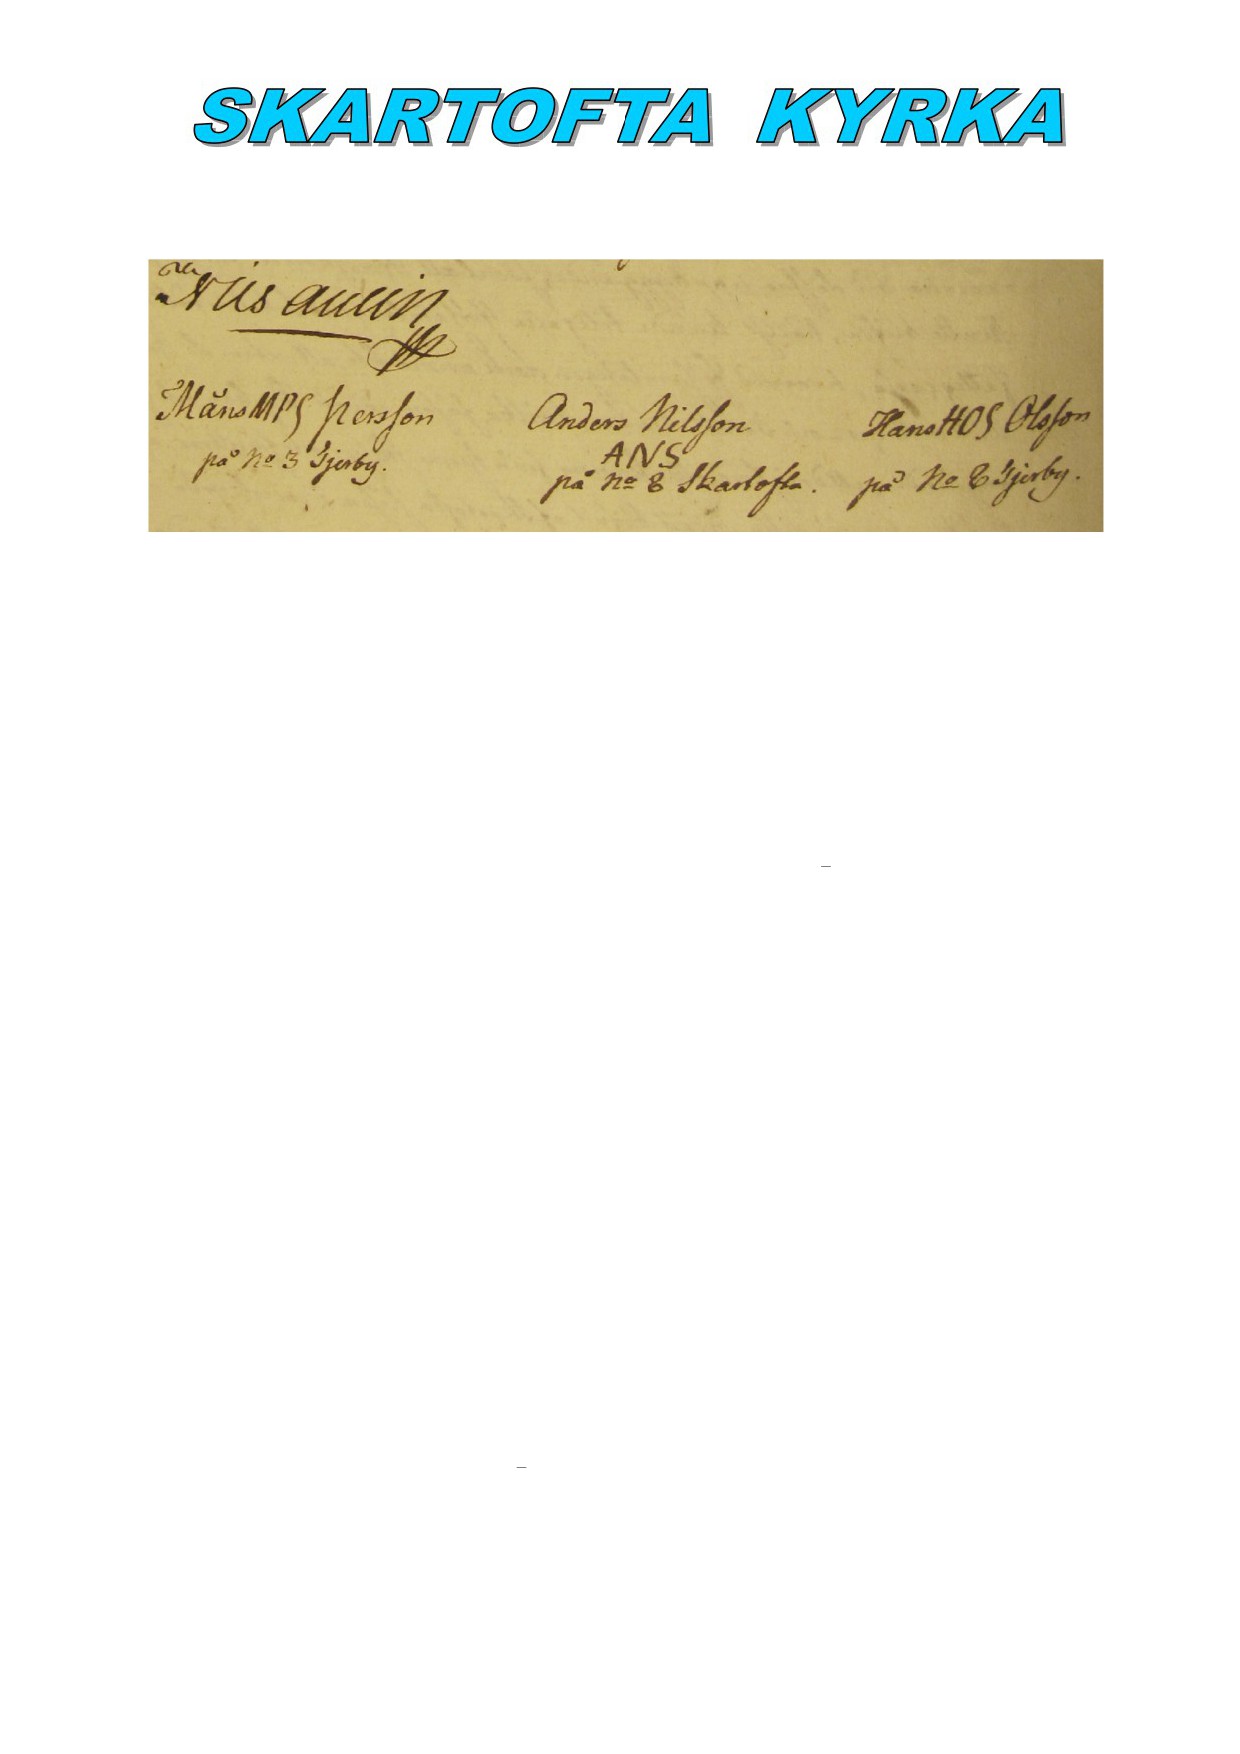 SKARTOFTA KYRKA
Nils
Måns MPS Persson
på No 3 Gjerby.
Anders Nilsson
ANS
på No 8 Skartofta.
Hans HOS Olsson
på No 8 Gjerby.